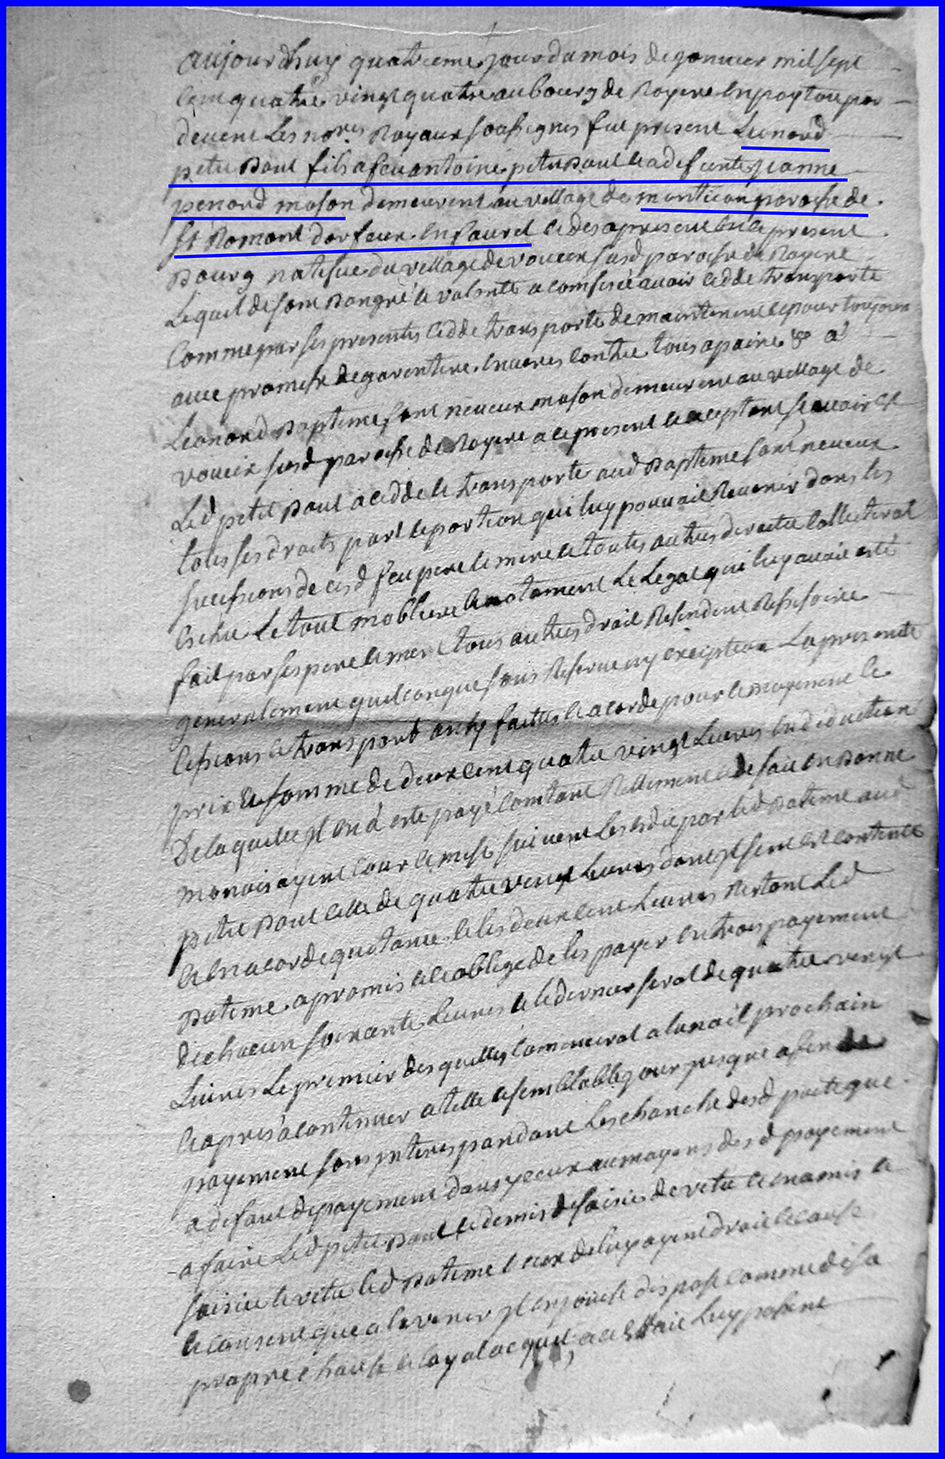 aujourdhuy quatrieme jour du mois de janvier mil sept
cent quatre vingt quatre au bourg de Royere en poytou par
devent les nores Royaux soussignes fut present Leonard
petit Daut fils a feu antoine petit Daut et a defunte jeanne
penard mason demeurent au village de
St Romant en faurel et des apresent en ce present
Bourg natif du village de voueix susd paroisse de Royere
Lequel de son bon gré et volonte a confessé avoir cedde transporte
comme par ses presentes cedde transporte de maintenent et pour toujours
avec promesse de garentire envers contre tous a paine & a
Leonard Dapteme sont neveux mason demeurent au village de
voueix susd paroisse de Royere a ce present et aceptent savoir est
Led petit Daut a cedde et transporte aud Dapteme sont neveux
tous ses droits part et portion qui luy pouvait Revenir dans les
successions de cesd feu pere et mere et toutes autres directe collecteral
echue Le tout mobliere et notament Le Legat qui luy avait esté
fait par ses pere et mere tous autres droit Resindent Ressisoire
generalement quelconque sans Reserve ny exception La presente
cessions et transport ainsy faitte et acorde pour et moyenent le
prix et somme de deux cent quatre vingt Livres en deduction
De laquelle il en a este payé contant Rellement et de fait en bonne
monois ayent cour et mise suivent Les edit par led Dateme aud
petit Daut celle de quatre vingt Livres dont il sent est contente
et en acorde quitance et les deux cent Livres Restant Led
Dateme a promis et cest obligé de les payer en trois payement
de chacun soixante Livres et le dernier serat de quatre vingt
Livres Le premier desquelles comencerat a la noël prochain
et apres a continuer a telle et semblable jour jusque a fin de
payement sans interes pandant Les
a defaut de payement dans yceux au moyens desd payement
a faire Led petit Daut ce demis desaisie devetu et en a mis et
saisie et vetu led Dateme et ceux de luy ayent droit et cause
et consent que a lavenir il en jouisse dispose comme de sa
propre chause et loyal acquit, a cet effait Luy posent